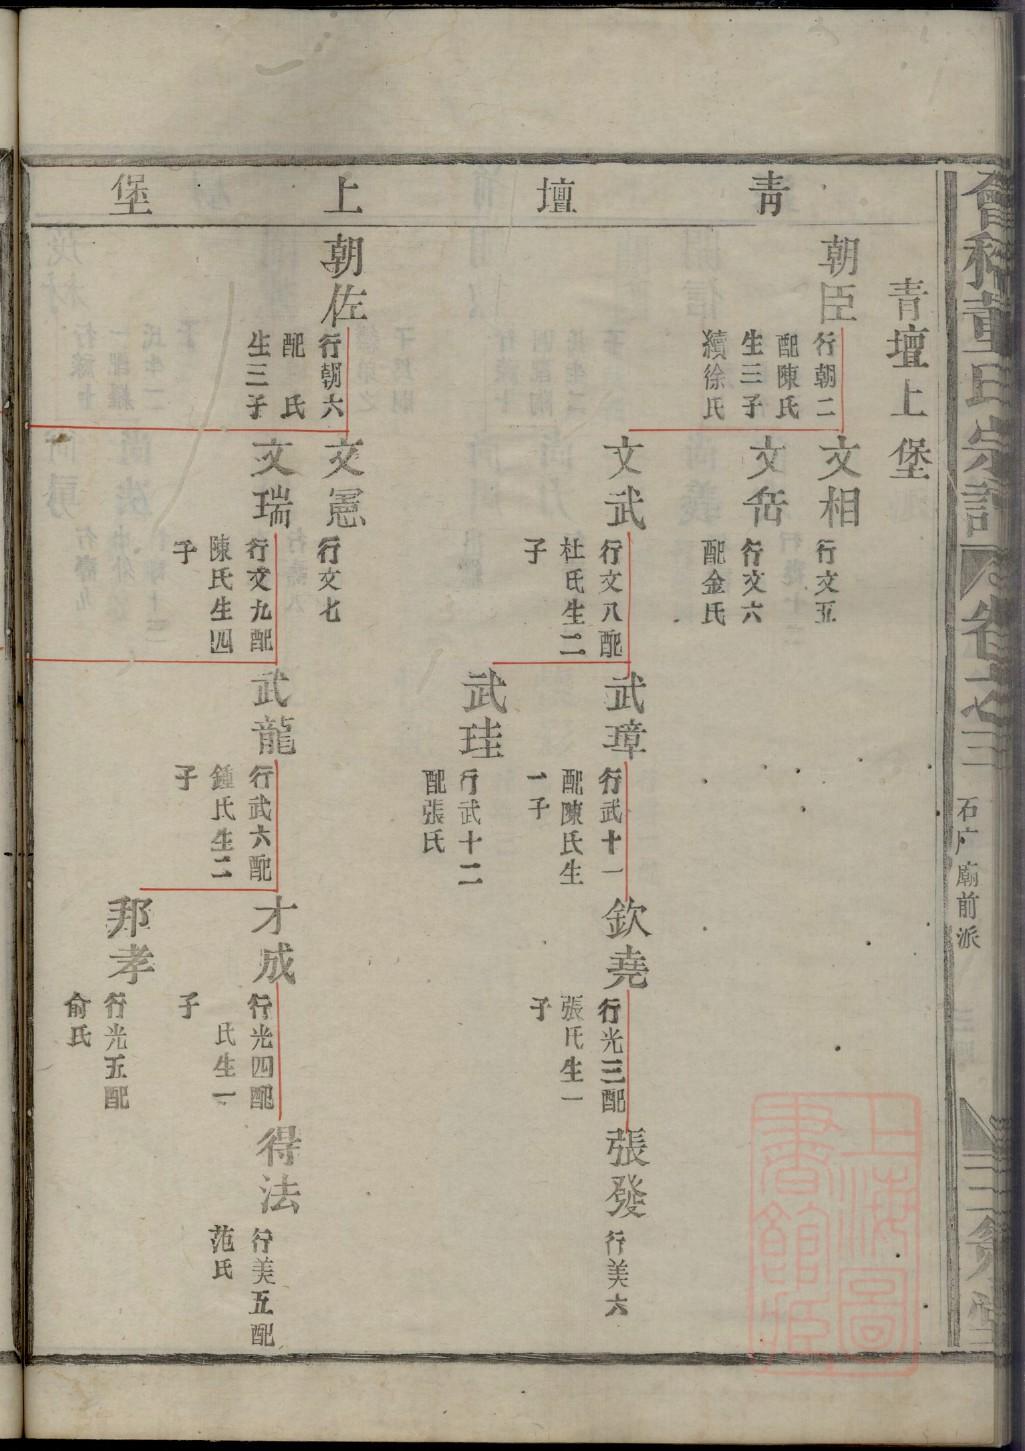 會稽董氏宗譜
卷之三
石廟前派
青壇上堡
青壇上堡
朝臣
行朝二
配陳氏
生三子
續徐氏
文相
行文五
文岳
行文六
配金氏
文武
行文八配
杜氏生二
子
武璋
行武十一
配陳氏生
一子
欽堯
行光三配
張氏生一
子
張發
行美六
武珪
行武十二
配張氏
朝佐
行朝六
配 氏
生三子
文憲
行文七
文瑞
行文九配
陳氏生四
子
武龍
行武六配
鍾氏生二
子
才成
行光四配
氏生一
子
得法
行美五配
范氏
邦孝
行光五配
俞氏
上海圖書館藏